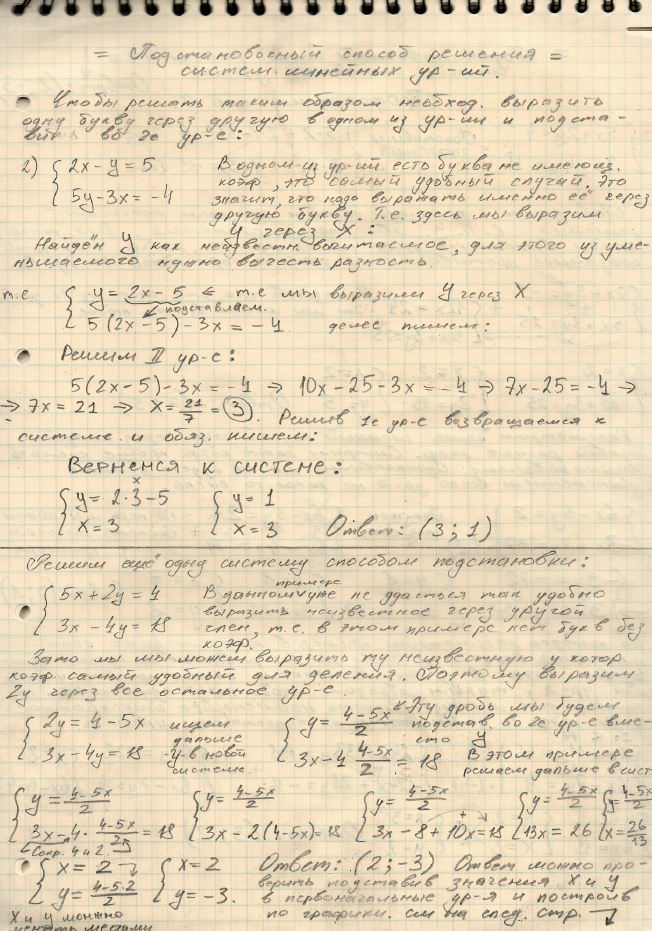 = Подстановочный способ решения =
систем линейных ур-ий.
Чтобы решать таким образом необход. выразить
одну букву через другую в одном из ур-ий и подста-
вить во 2е ур-е:
2) { 2x - y = 5
{ 5y - 3x = -4
В одном из ур-ий есть буква не имеющ.
коэф, это самый удобный случай. Это
значит, что надо выражать именно её через
другую букву. Т.е. здесь мы выразим
y через x:
Найдён y как неизвестн. вычитаемое, для этого из уме-
ньшаемого нужно вычесть разность.
т.е. { y = 2x - 5 ← т.е мы выразили y через x
подставляем.
{ 5(2x - 5) - 3x = -4 далее пишем:
Решим II ур-е:
5(2x - 5) - 3x = -4 → 10x - 25 - 3x = -4 → 7x - 25 = -4 →
→ 7x = 21 → x = 21/7 = 3. Решив 1е ур-е возвращаемся к
системе и обяз. пишем:
Вернемся к системе:
x
{ y = 2·3 - 5 { y = 1
{ x = 3 { x = 3 Ответ: (3; 1)
Решим ещё одну систему способом подстановки:
{ 5x + 2y = 4
{ 3x - 4y = 18
примере
В данном уже не удасться так удобно
выразить неизвестное через другой
член, т.е. в этом примере нет букв без
коэф.
Зато мы мы можем выразить ту неизвестную у котор
коэф самый удобный для деления. Поэтому выразим
2y через все остальное ур-е.
{ 2y = 4 - 5x
{ 3x - 4y = 18
ищем
дальше
y в новой
системе
{ y = (4-5x)/2
{ 3x - 4 (4-5x)/2 = 18
Эту дробь мы будем
подстав. во 2е ур-е вме-
сто y
В этом примере
решаем дальше в сист
{ y = (4-5x)/2 { y = (4-5x)/2 { y = (4-5x)/2 { y = (4-5x)/2 { y = (4-5x)/2
{ 3x - 4 · (4-5x)/2 = 18 { 3x - 2(4-5x) = 18 { 3x - 8 + 10x = 18 { 13x = 26 { x = 26/13
Сокр. 4 и 2
+
{ x = 2 { x = 2
{ y = (4-5·2)/2 { y = -3.
Ответ: (2; -3) Ответ можно про-
верить подставив значения x и y
в первоначальные ур-я и построив
по графики. см на след. стр. →
x и y можно
менять местами